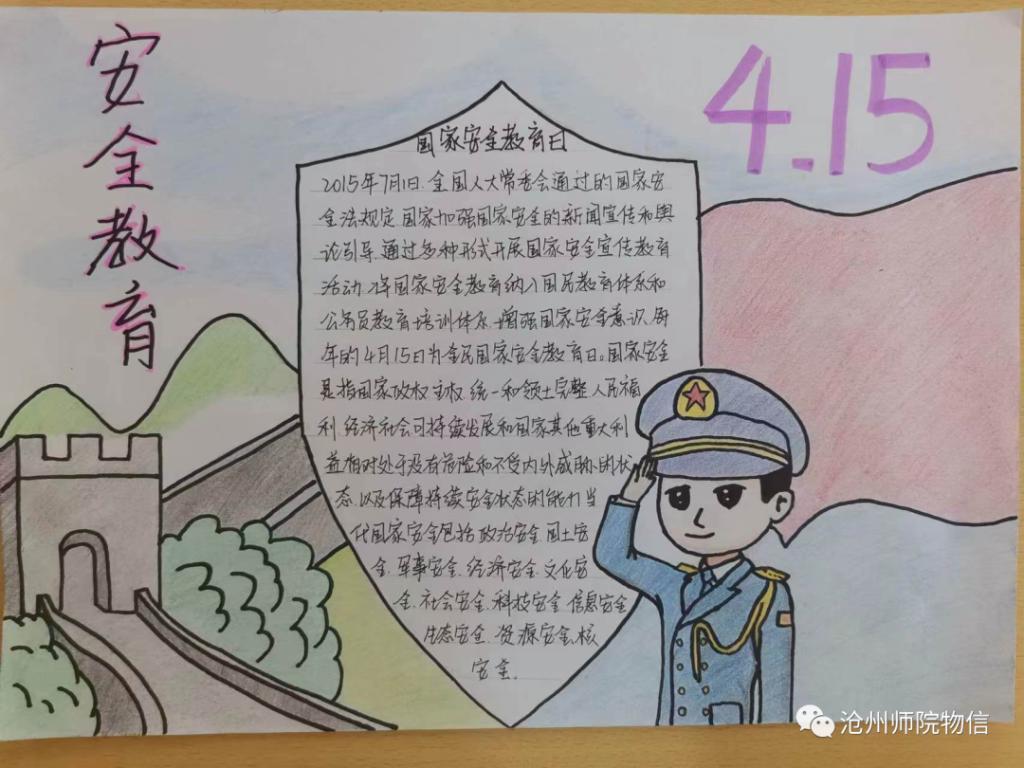 安全教育
4.15
国家安全教育日
2015年7月1日.全国人大常委会通过的国家安
全法规定国家加强国家安全的新闻宣传和舆
论引导,通过多种形式开展国家安全宣传教育
活动.将国家安全教育纳入国民教育体系和
公务员教育培训体系,增强国家安全意识,每
年的4月15日为全民国家安全教育日。国家安全
是指国家政权 主权 统一和领土完整 人民福
利,经济社会可持续发展和国家其他重大利
益相对处于没有危险和不受内外威胁的状
态.以及保障持续安全状态的能力当
代国家安全包括政治安全.国土安
全.军事安全.经济安全.文化安
全.社会安全.科技安全.信息安全
生态安全.资源安全.核
安全.
沧州师院物信